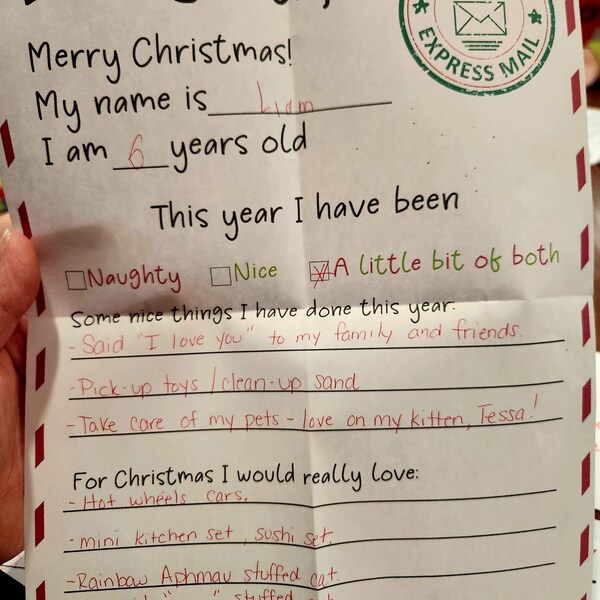 EXPRESS MAIL
Merry Christmas!
My name is Liam
I am 6 years old
This year I have been
Naughty Nice A little bit of both
Some nice things I have done this year:
- Said "I love you" to my family and friends.
- Pick-up toys / clean-up sand
- Take care of my pets - love on my kitten, Tessa!
For Christmas I would really love:
- Hot wheels cars,
- mini kitchen set, sushi set,
- Rainbow Aphmau stuffed cat.
stuffed